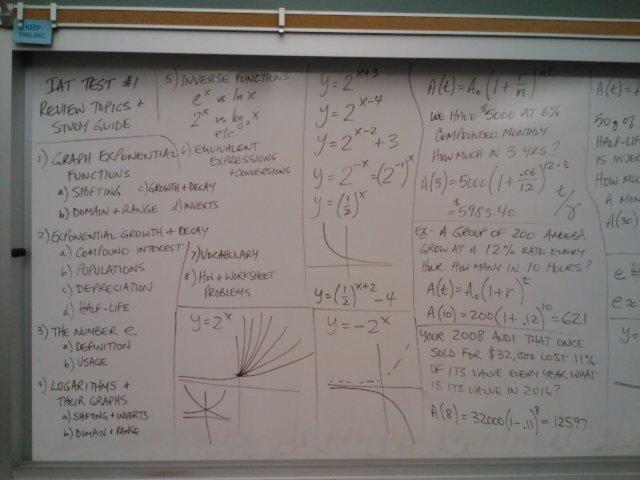 KEEP
SMILING
IAT TEST #1
REVIEW TOPICS &
STUDY GUIDE
1) GRAPH EXPONENTIAL
FUNCTIONS
a) SHIFTING c) GROWTH & DECAY
b) DOMAIN & RANGE d) INVERTS
2) EXPONENTIAL GROWTH & DECAY
a) COMPOUND INTEREST
b) POPULATIONS
c) DEPRECIATION
d) HALF-LIFE
3) THE NUMBER e
a) DEFINITION
b) USAGE
4) LOGARITHMS &
THEIR GRAPHS
a) SHIFTING & INVERTS
b) DOMAIN & RANGE
5) INVERSE FUNCTIONS
e^x vs ln x
2^x vs log₂x
etc.
6) EQUIVALENT
EXPRESSIONS
+ CONVERSIONS
7) VOCABULARY
8) HW & WORKSHEET
PROBLEMS
y=2^x
y=2^(x+3)
y=2^(x-4)
y=2^(x-2)+3
y=2^(-x)=(2^(-1))^x
y=(1/2)^x
y=(1/2)^(x+2)-4
y=-2^x
A(t)=A₀(1+r/n)^(nt)
WE HAVE $5000 AT 6%
COMPOUNDED MONTHLY.
HOW MUCH IN 3 YRS.?
A(3)=5000(1+.06/12)^(12·3)
=$5983.40
t/r
EX: A GROUP OF 200 AMOEBA
GROW AT A 12% RATE EVERY
HOUR. HOW MANY IN 10 HOURS?
A(t)=A₀(1+r)^t
A(10)=200(1+.12)^10=621
YOUR 2008 AUDI THAT ONCE
SOLD FOR $32,000 LOST 11%
OF ITS VALUE EVERY YEAR. WHAT
IS ITS VALUE IN 2016?
A(8)=32000(1-.11)^8=12597.
A(t)=
50g of
HALF-LIF
IS INJEC
HOW MUC
A MON
A(30)
y=